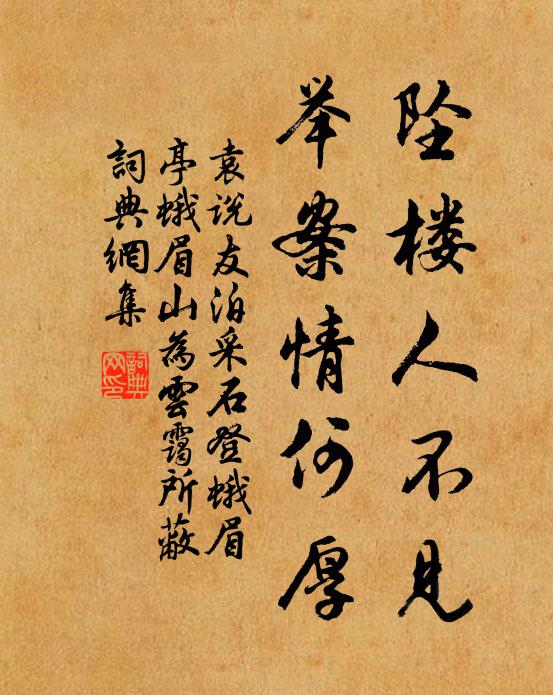 坠楼人不见
举案情何厚
袁说友泊采石登蛾眉
亭蛾眉山为雲霭所蔽
詞典網集
詞典網印